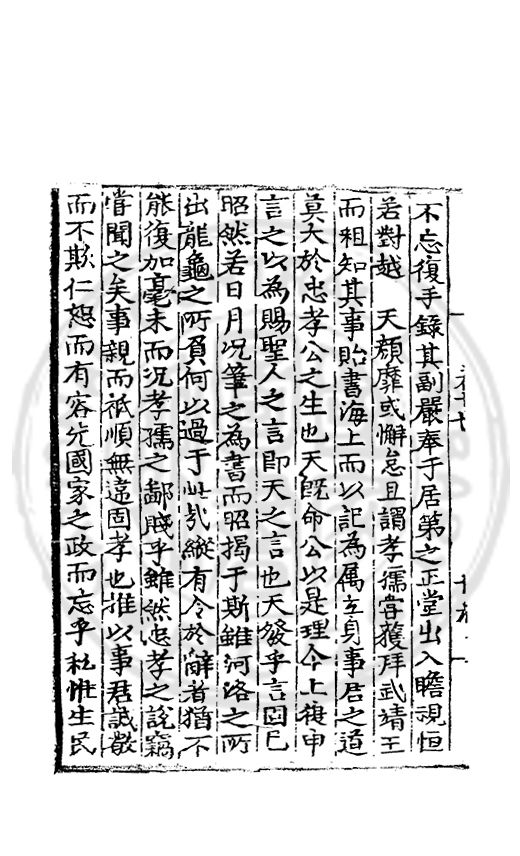 不忘復手錄其副嚴奉于居第之正堂出入瞻視恒
若對越　天顏靡或懈怠且謂孝孺嘗獲拜武靖王
而粗知其事貽書海上而以記為属立身事君之道
莫大於忠孝公之生也天旣命公以是理今上復申
言之以為賜聖人之言即天之言也天發乎言固已
昭然若日月况筆之為書而昭揭于斯雖河洛之所
出龍龜之所負何以過于此哉縱有令於辭者猶不
能復加毫末而况孝孺之鄙賤乎雖然忠孝之說竊
嘗聞之矣事親而祗順無違固孝也推以事君誠敬
而不欺仁恕而有容先國家之政而忘乎私惟生民